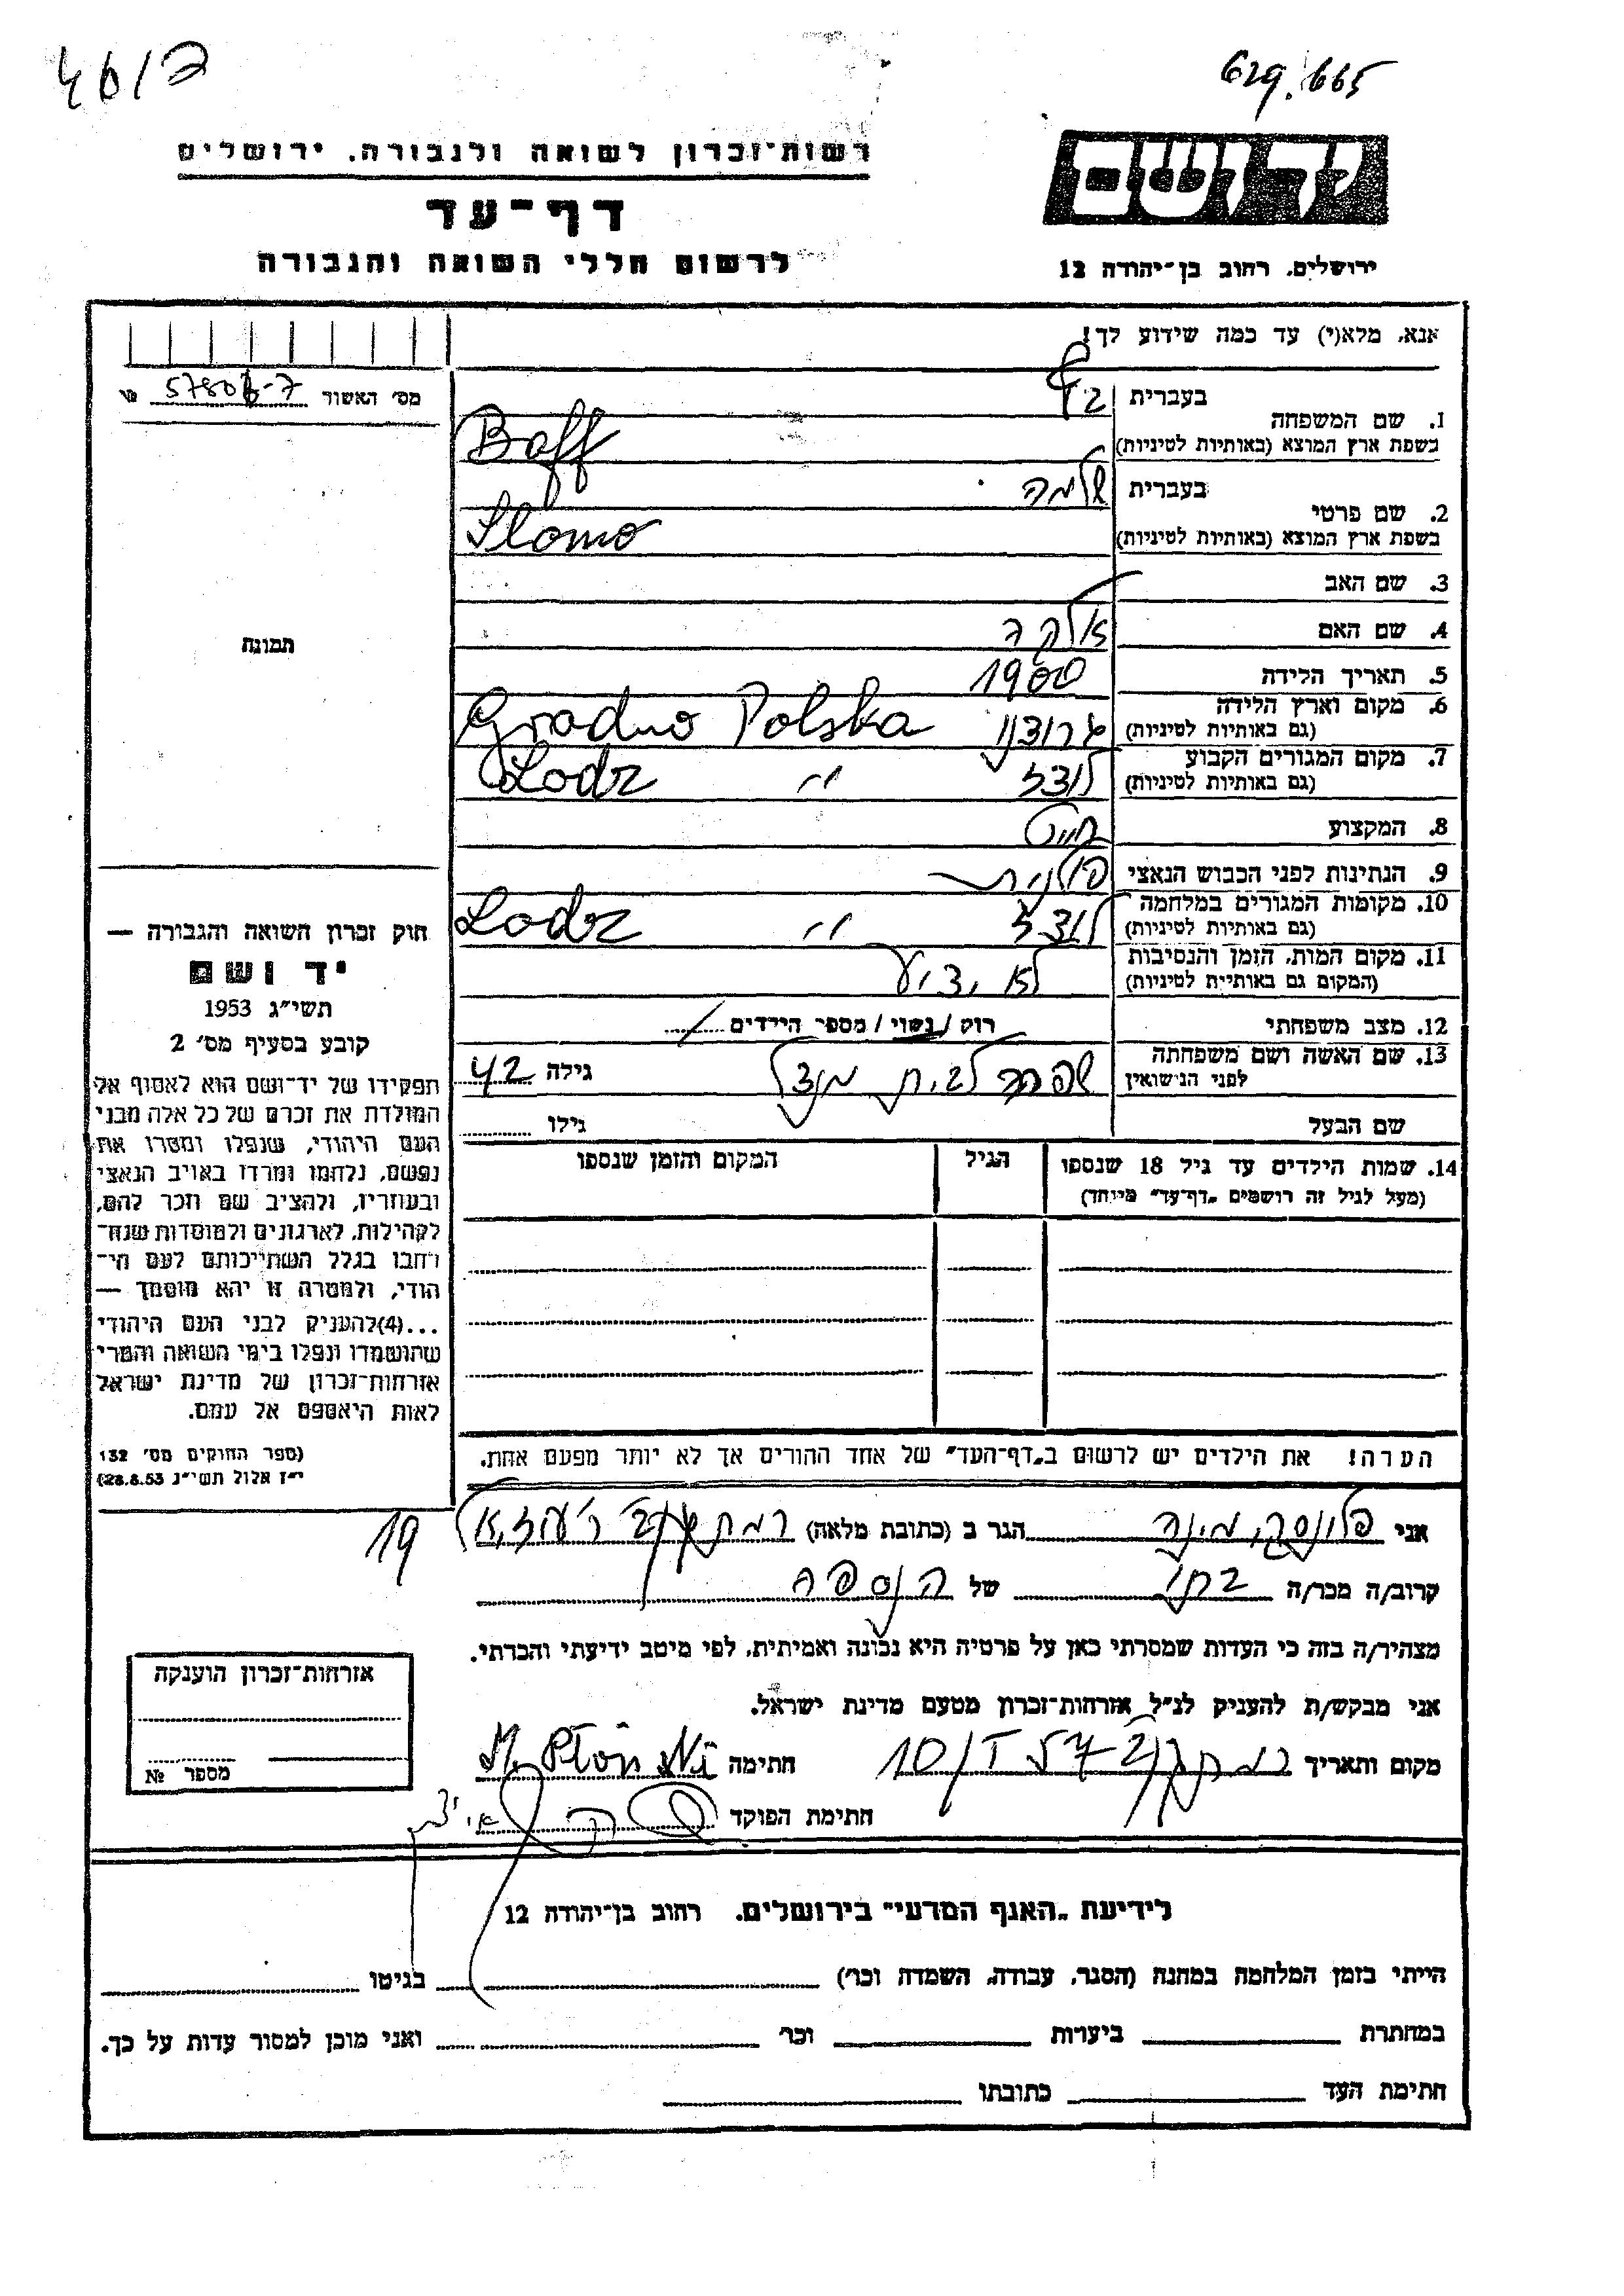 4617
629.665
רשות-זכרון לשואה ולגבורה. ירושלים
דף-עד
לרשום חללי השואה והגבורה
יד ושם
ירושלים. רחוב בן-יהודה 12
אנא, מלא(י) עד כמה שידוע לך!
מס' האשור
1. שם המשפחה
בעברית
בשפת ארץ המוצא (באותיות לטיניות) Baff
2. שם פרטי
בעברית שלמה
בשפת ארץ המוצא (באותיות לטיניות) Slomo
3. שם האב
4. שם האם
5. תאריך הלידה 1900
6. מקום וארץ הלידה
(גם באותיות לטיניות) גרודנו Grodno Polska
7. מקום המגורים הקבוע
(גם באותיות לטיניות) לודז Lodz "
8. המקצוע חייט
9. הנתינות לפני הכבוש הנאצי פולנית
10. מקומות המגורים במלחמה
(גם באותיות לטיניות) לודז " Lodz
11. מקום המות, הזמן והנסיבות
(המקום גם באותיות לטיניות) לא ידוע
12. מצב משפחתי רווק / נשוי / מספר הילדים
13. שם האשה ושם משפחתה
לפני הנישואין לבית מנדל גילה 42
שם הבעל גילו
14. שמות הילדים עד גיל 18 שנספו
(מעל לגיל זה רושמים „דף-עד" מיוחד)
הגיל
המקום והזמן שנספו
הערה! את הילדים יש לרשום ב„דף-העד" של אחד ההורים אך לא יותר מפעם אחת.
תמונה
חוק זכרון השואה והגבורה —
יד ושם
תשי"ג 1953
קובע בסעיף מס' 2
תפקידו של יד-ושם הוא לאסוף אל
המולדת את זכרם של כל אלה מבני
העם היהודי, שנפלו ומסרו את
נפשם, נלחמו ומרדו באויב הנאצי
ובעוזריו, ולהציב שם וזכר להם,
לקהילות, לארגונים ולמוסדות שנח-
רבו בגלל השתייכותם לעם הי-
הודי, ולמטרה זו יהא מוסמך —
...(4)להעניק לבני העם היהודי
שהושמדו ונפלו בימי השואה והמרי
אזרחות-זכרון של מדינת ישראל
לאות היאספם אל עמם.
(ספר החוקים מס' 132
י"ז אלול תשי"ג 28.8.53)
אני מינה הגר ב (כתובת מלאה) רמת גן 19
קרוב/ה מכר/ה של הנספה
מצהיר/ה בזה כי העדות שמסרתי כאן על פרטיה היא נכונה ואמיתית, לפי מיטב ידיעתי והכרתי.
אני מבקש/ת להעניק לנ"ל אזרחות-זכרון מטעם מדינת ישראל.
מקום ותאריך רמת גן חתימה M. Płoński
חתימת הפוקד
אזרחות-זכרון הוענקה
מספר №
לידיעת „האגף המדעי" בירושלים. רחוב בן-יהודה 12
הייתי בזמן המלחמה במחנה (הסגר, עבודה, השמדה וכר') בגיטו
במחתרת ביערות וכר' ואני מוכן למסור עדות על כך.
חתימת העד כתובתו